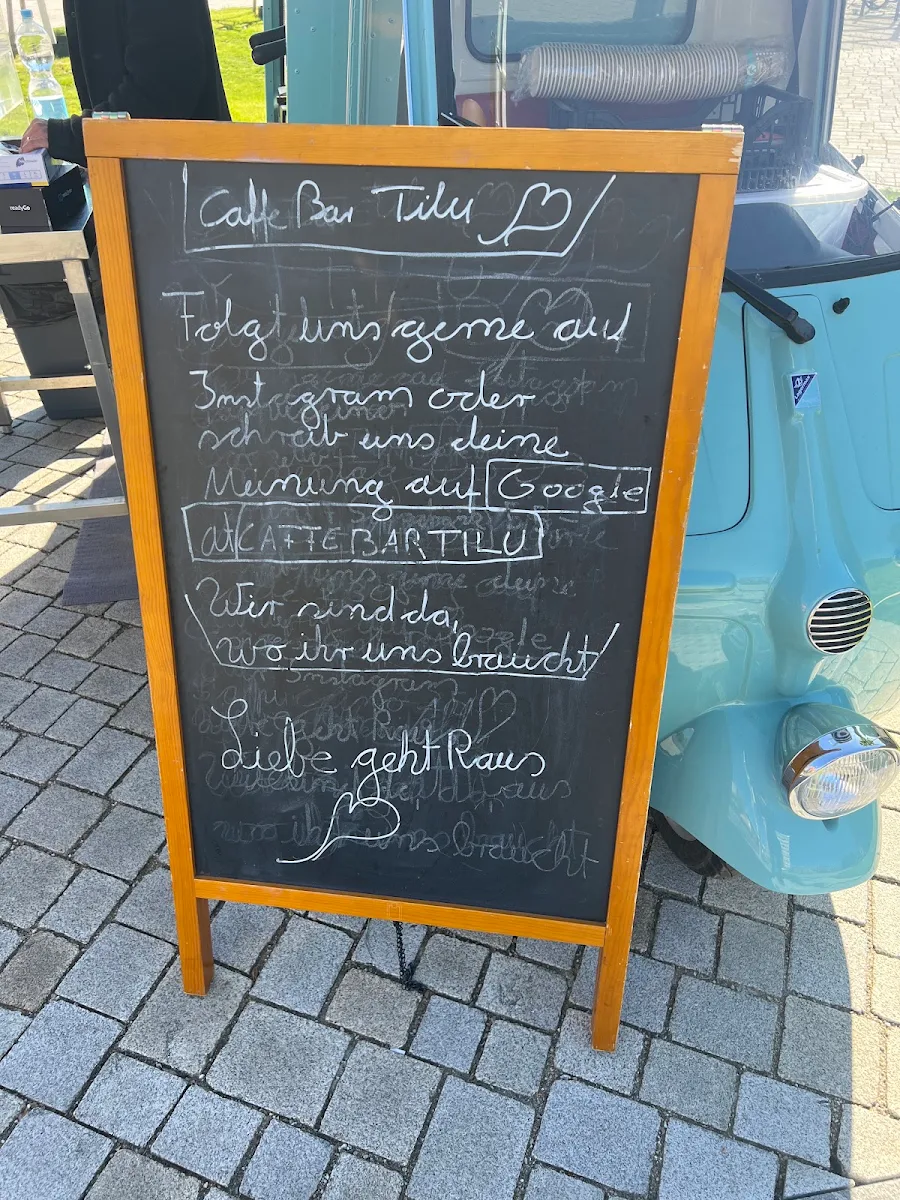 Caffe Bar Tilu
Folgt uns gerne auf
Instagram oder
schreib uns deine
Meinung auf Google
at CAFFE BAR TILU
Wir sind da,
wo ihr uns braucht
Liebe geht Raus
readyGo